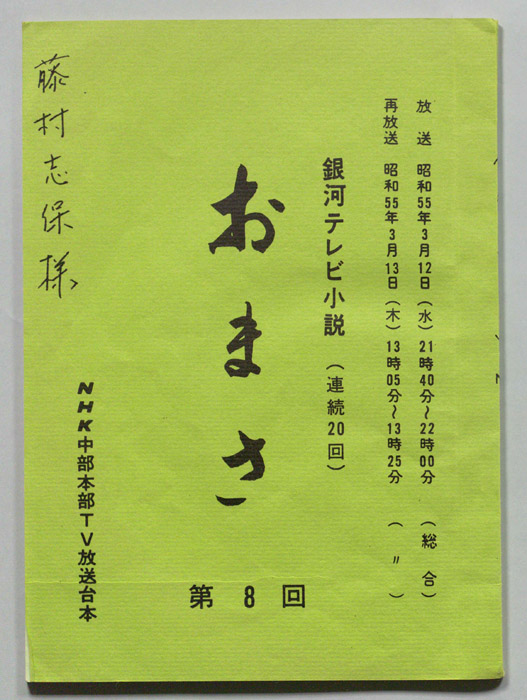 放送 昭和55年3月12日(水)21時40分~22時00分(総合)
再放送 昭和55年3月13日(木)13時05分~13時25分(〃)
銀河テレビ小説(連続20回)
おまさ
第8回
NHK中部本部TV放送台本
藤村志保様